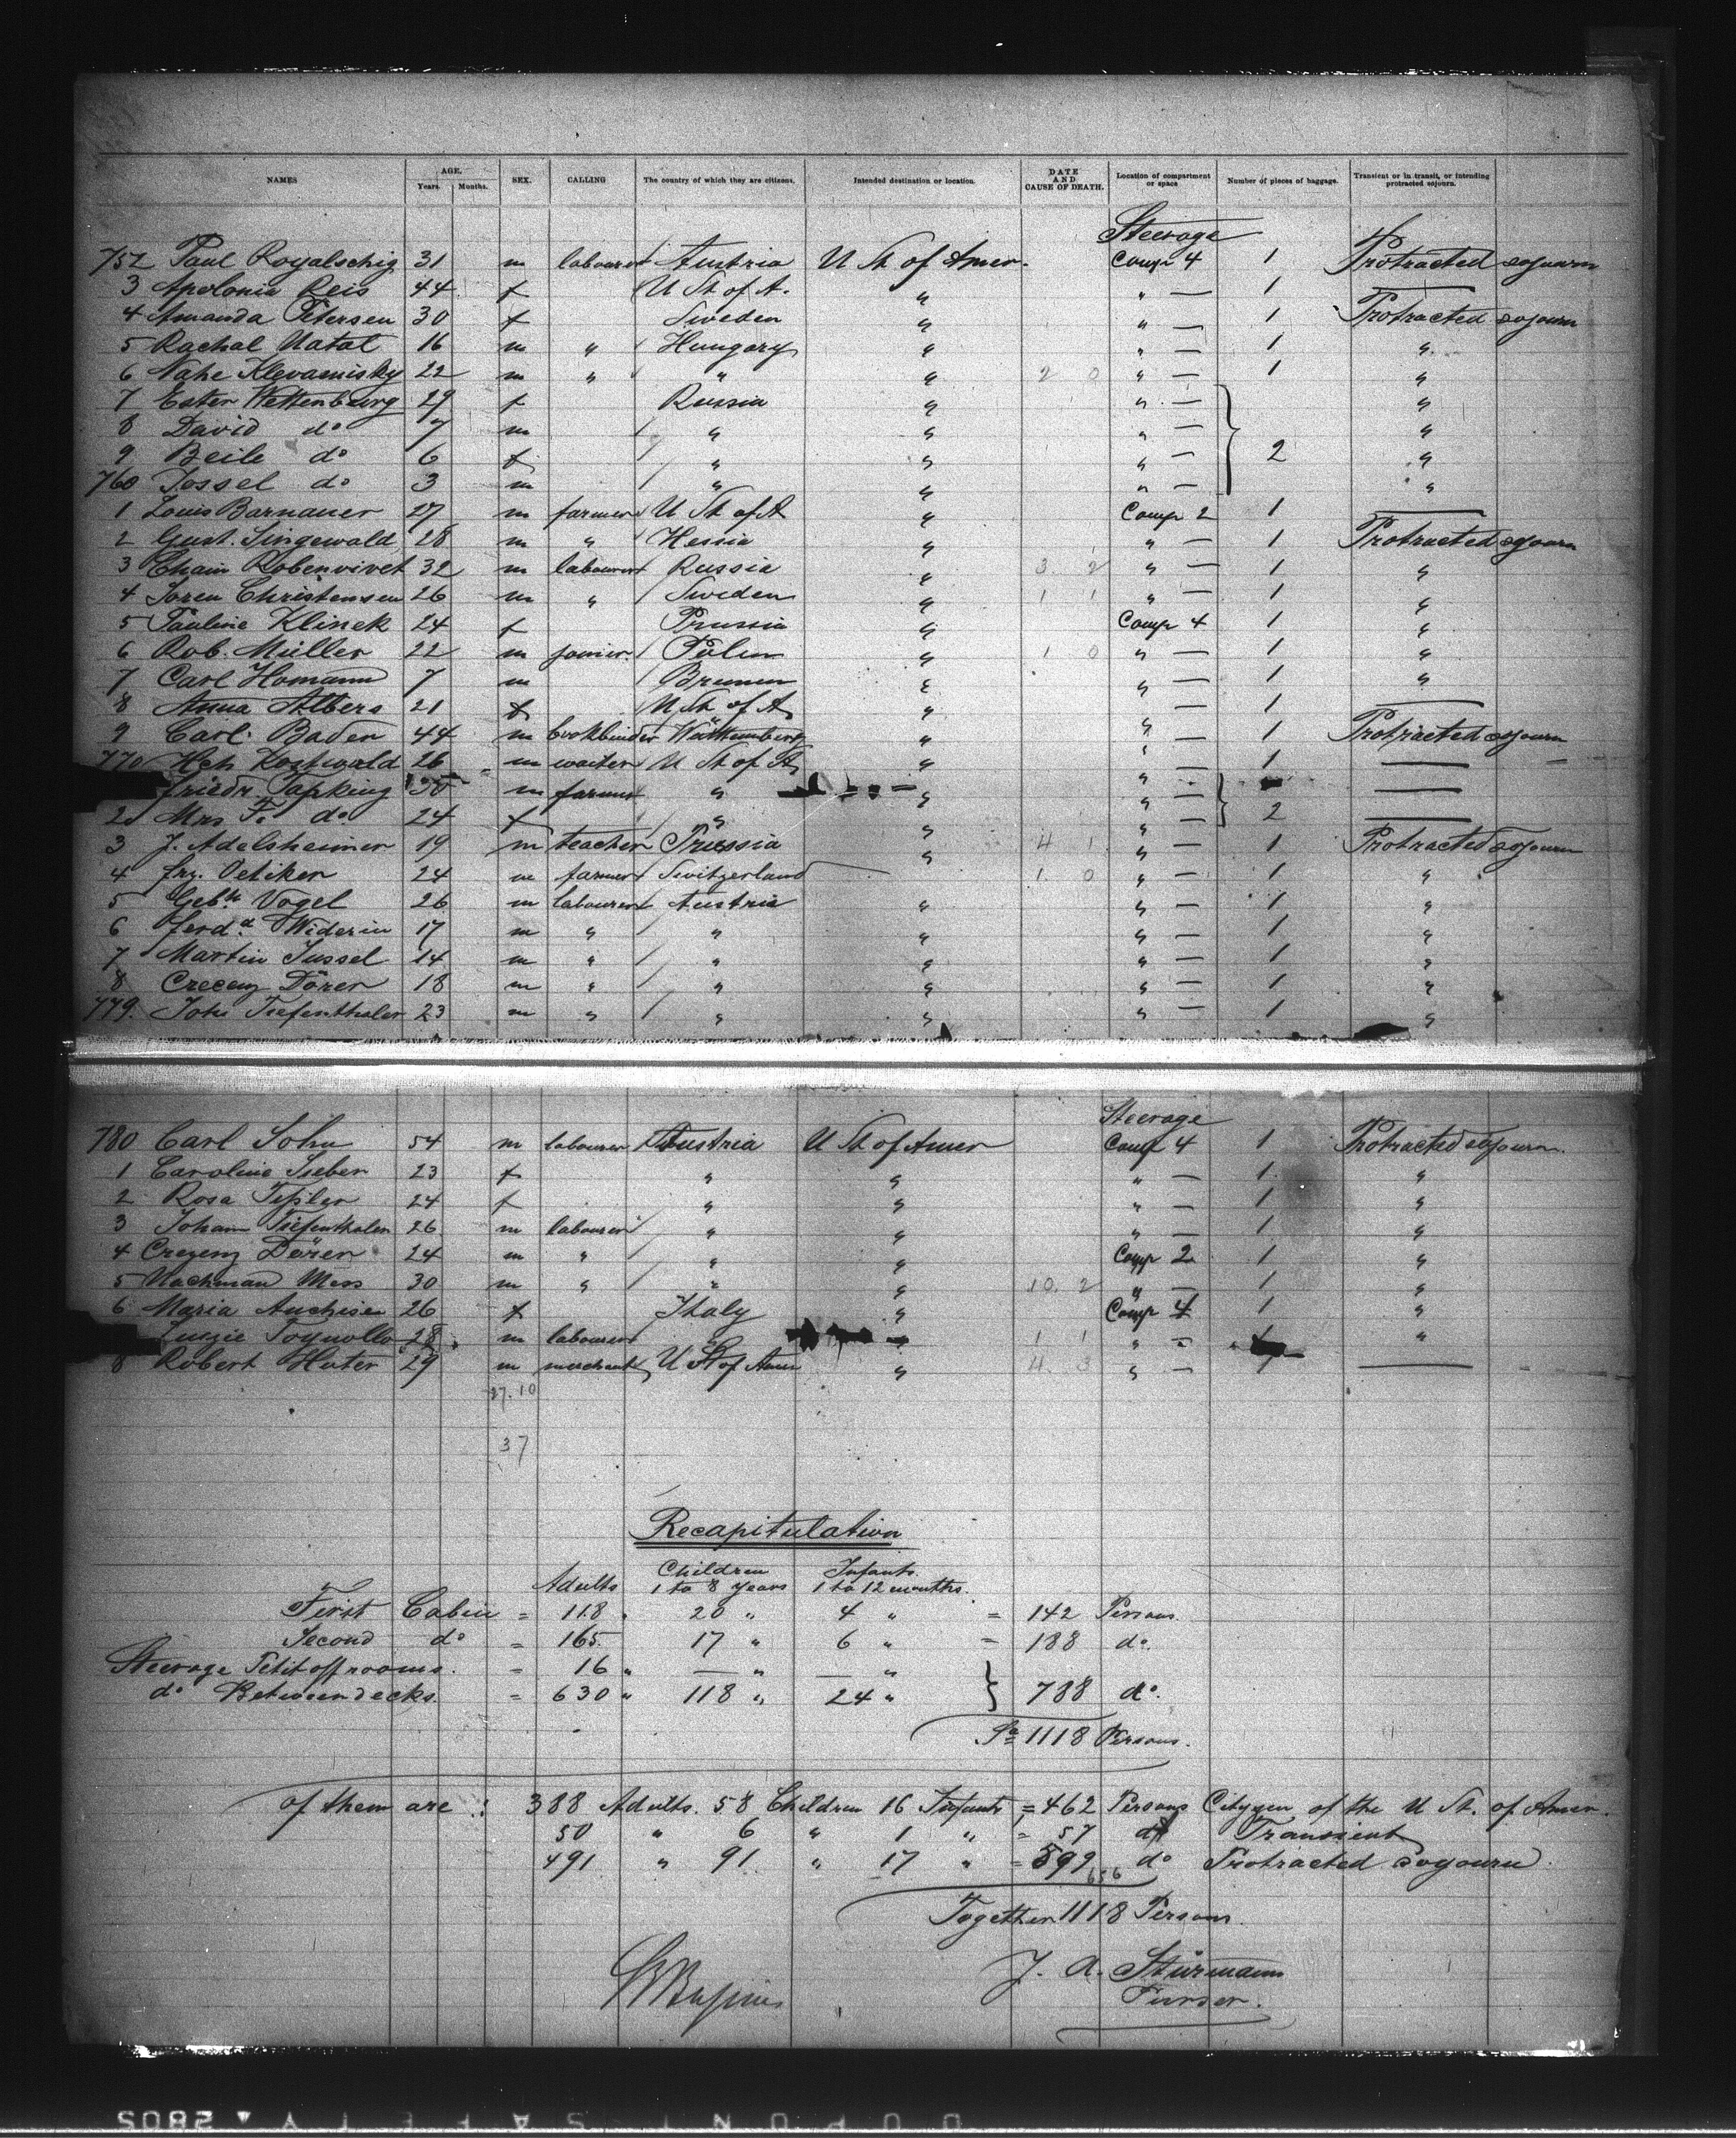 NAMES AGE. Years. Months. SEX. CALLING The country of which they are citizens. Intended destination or location. DATE AND CAUSE OF DEATH. Location of compartment or space Number of pieces of baggage. Transient or in transit, or intending protracted sojourn.
Steerage
752 Paul Royalschig 31 m labourer Austria U St of Amer. Comp 4 1 Protracted sojourn
3 Apolonia Reis 44 f U St of A. " " — 1 —
4 Amanda Petersen 30 f Sweden " " — 1 Protracted sojourn
5 Rachal Natal 16 m " Hungary " " — 1 "
6 22 m " " " 2 0 " — 1 "
7 Ester Wettenburg 29 f Russia " " — "
8 David do 7 m " " " — "
9 Beile do 6 f " " " — 2 "
760 Jossel do 3 m " " " — "
1 Louis Barnauer 27 m farmer U St of A " Comp 2 1 —
2 Gust. Singewald 28 m " Hessia " " — 1 Protracted sojourn
3 Chaim 32 m labourer Russia " 3. 2 " — 1 "
4 Soren Christensen 26 m " Sweden " 1 1 " — 1 "
5 Pauline Klinek 24 f Prussia " Comp 4 1 "
6 Rob. Müller 22 m joiner Polen " 1 0 " — 1 "
7 Carl Homann 7 m Bremen " " — 1 "
8 Anna Albers 21 f U St. of A " " — 1 —
9 Carl Bader 44 m bookbinder Württemberg " " — 1 Protracted sojourn
770 Hch Kostwald 26 m waiter U St of A " " — 1 —
Friedr. Tapking 30 m farmer " " " — —
2 Mrs F. do 24 f " " " — 2 —
3 J. Adelsheimer 19 m teacher Prussia " 4 1 " — 1 Protracted sojourn
4 Frz. Oetiker 24 m farmer Switzerland 1. 0 " — 1 "
5 Gebh Vogel 26 m labourer Austria " " — 1 "
6 Ferdd. Widerin 17 m " " " " — 1 "
7 Martin Jussel 14 m " " " " — 1 "
8 Crecenz Dörer 18 m " " " " — 1 "
779. Joh Tiefenthaler 23 m " " " " — 1 "
Steerage
780 Carl John 54 m labourer Austria U St of Amer Comp 4 1 Protracted sojourn.
1 Caroline Sieber 23 f " " " — 1 "
2 Rosa Tessler 24 f " " " — 1 "
3 Johann Tiefenthaler 26 m labourer " " " — 1 "
4 Crezenz Dörer 24 m " " " Comp 2 1 "
5 Nachman Mess 30 m " " " 10. 2 " — 1 "
6 Maria Anchisen 26 f Italy " Comp 4 1 "
28 m labourer " 1 1 " — "
8 Robert Huter 29 m merchant U St of Amer " 4. 3 " — —
27. 10
37
Recapitulation
Adults Children 1 to 8 years Infants. 1 to 12 months.
First Cabin = 118 " 20 " 4 " = 142 Persons
Second do = 165 17 " 6 " = 188 do.
Steerage Petitoff rooms. = 16 " — " — "
do Betweendecks. = 630 " 118 " 24 " 788 do.
Sa 1118 Persons.
Of them are : 388 Adults. 58 Children 16 Infants = 462 Persons Cityzen of the U St. of Amer.
50 " 6 " 1 " = 57 do Transient
491 " 91 " 17 " = 599 do Protracted Sogourn.
656
Together 1118 Persons.
J. A. Stürmann
Purser.